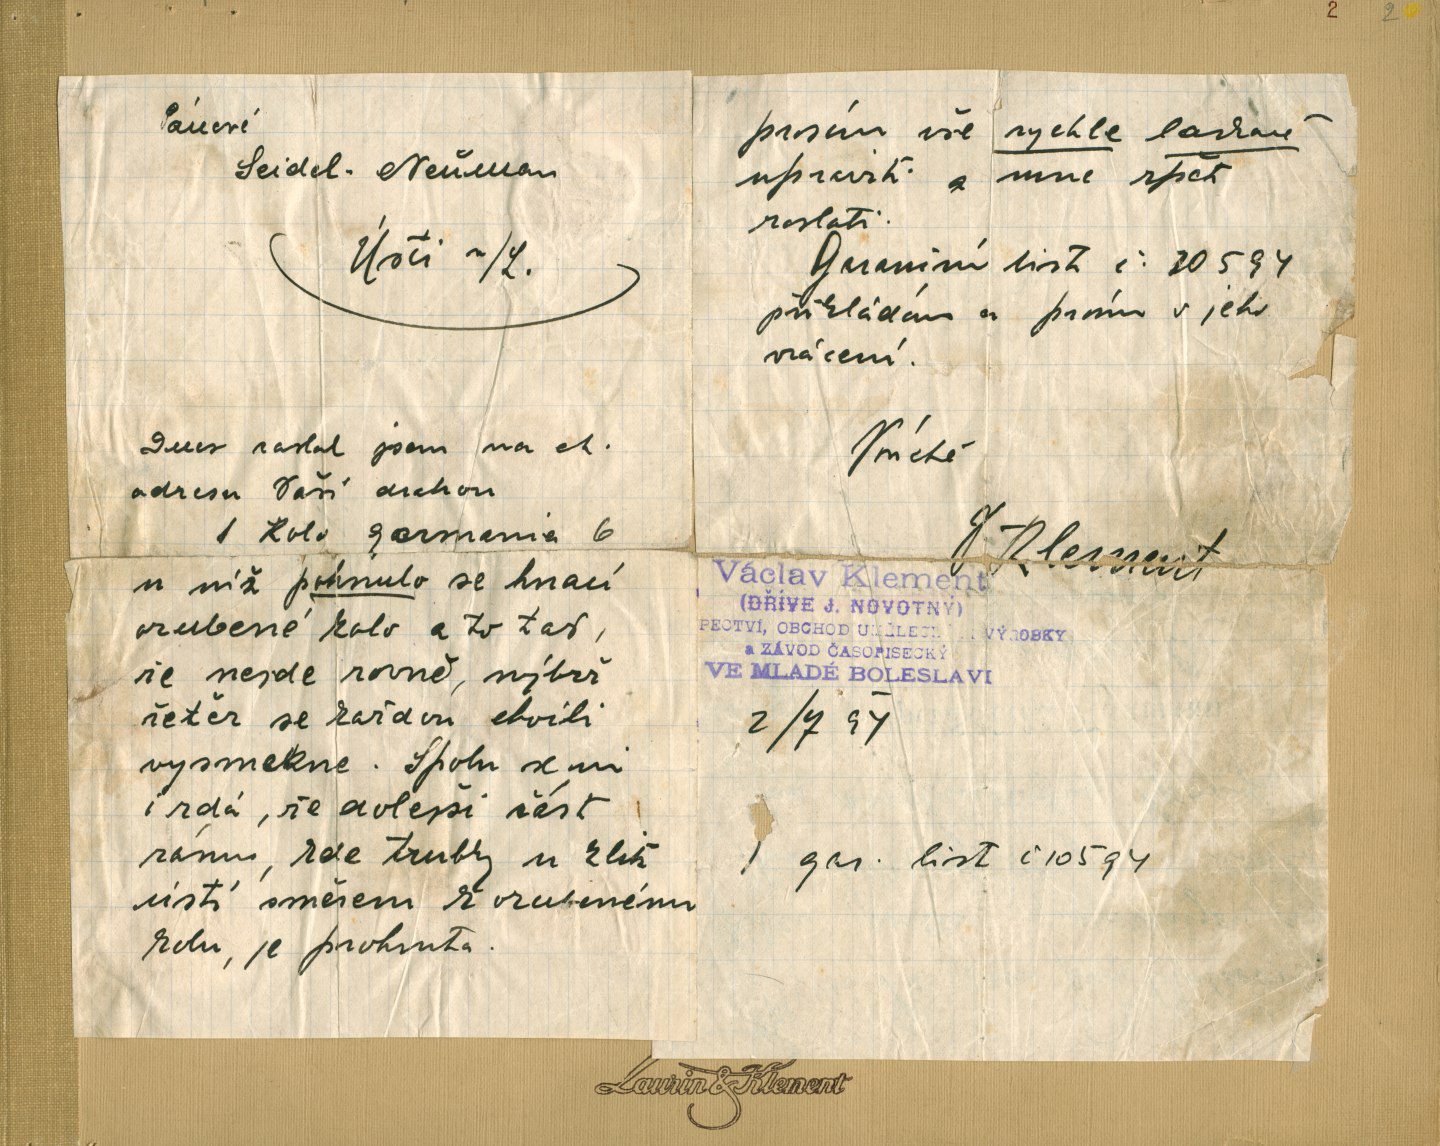 2 2
Pánové
Seidel - Neüman
Ústí n/L.
Dnes zaslal jsem na ct.
adresu Vaší drahou
1 kolo germania 6
u níž pohnulo se hnací
ozubené kolo a to tak,
že nejde rovně, nýbrž
řetěz se každou chvíli
vysmekne. Spolu se mi
i zdá, že dolejší část
rámu, kde trubky u klik
ústí směrem k ozubenému
kolu, je prohnuta.
prosím vše rychle laskavě
upraviti a mne zpět
zaslati.
Garanční list č: 30594
přikládám a prosím o jeho
vrácení.
V úctě
V Klement
Václav Klement
(DŘÍVE J. NOVOTNÝ)
PECTVÍ, OBCHOD UMĚLECK VÝROBKY
a ZÁVOD ČASOPISECKÝ
VE MLADÉ BOLESLAVI
2/7 94
1 gar. list č 10594
Laurin & Klement